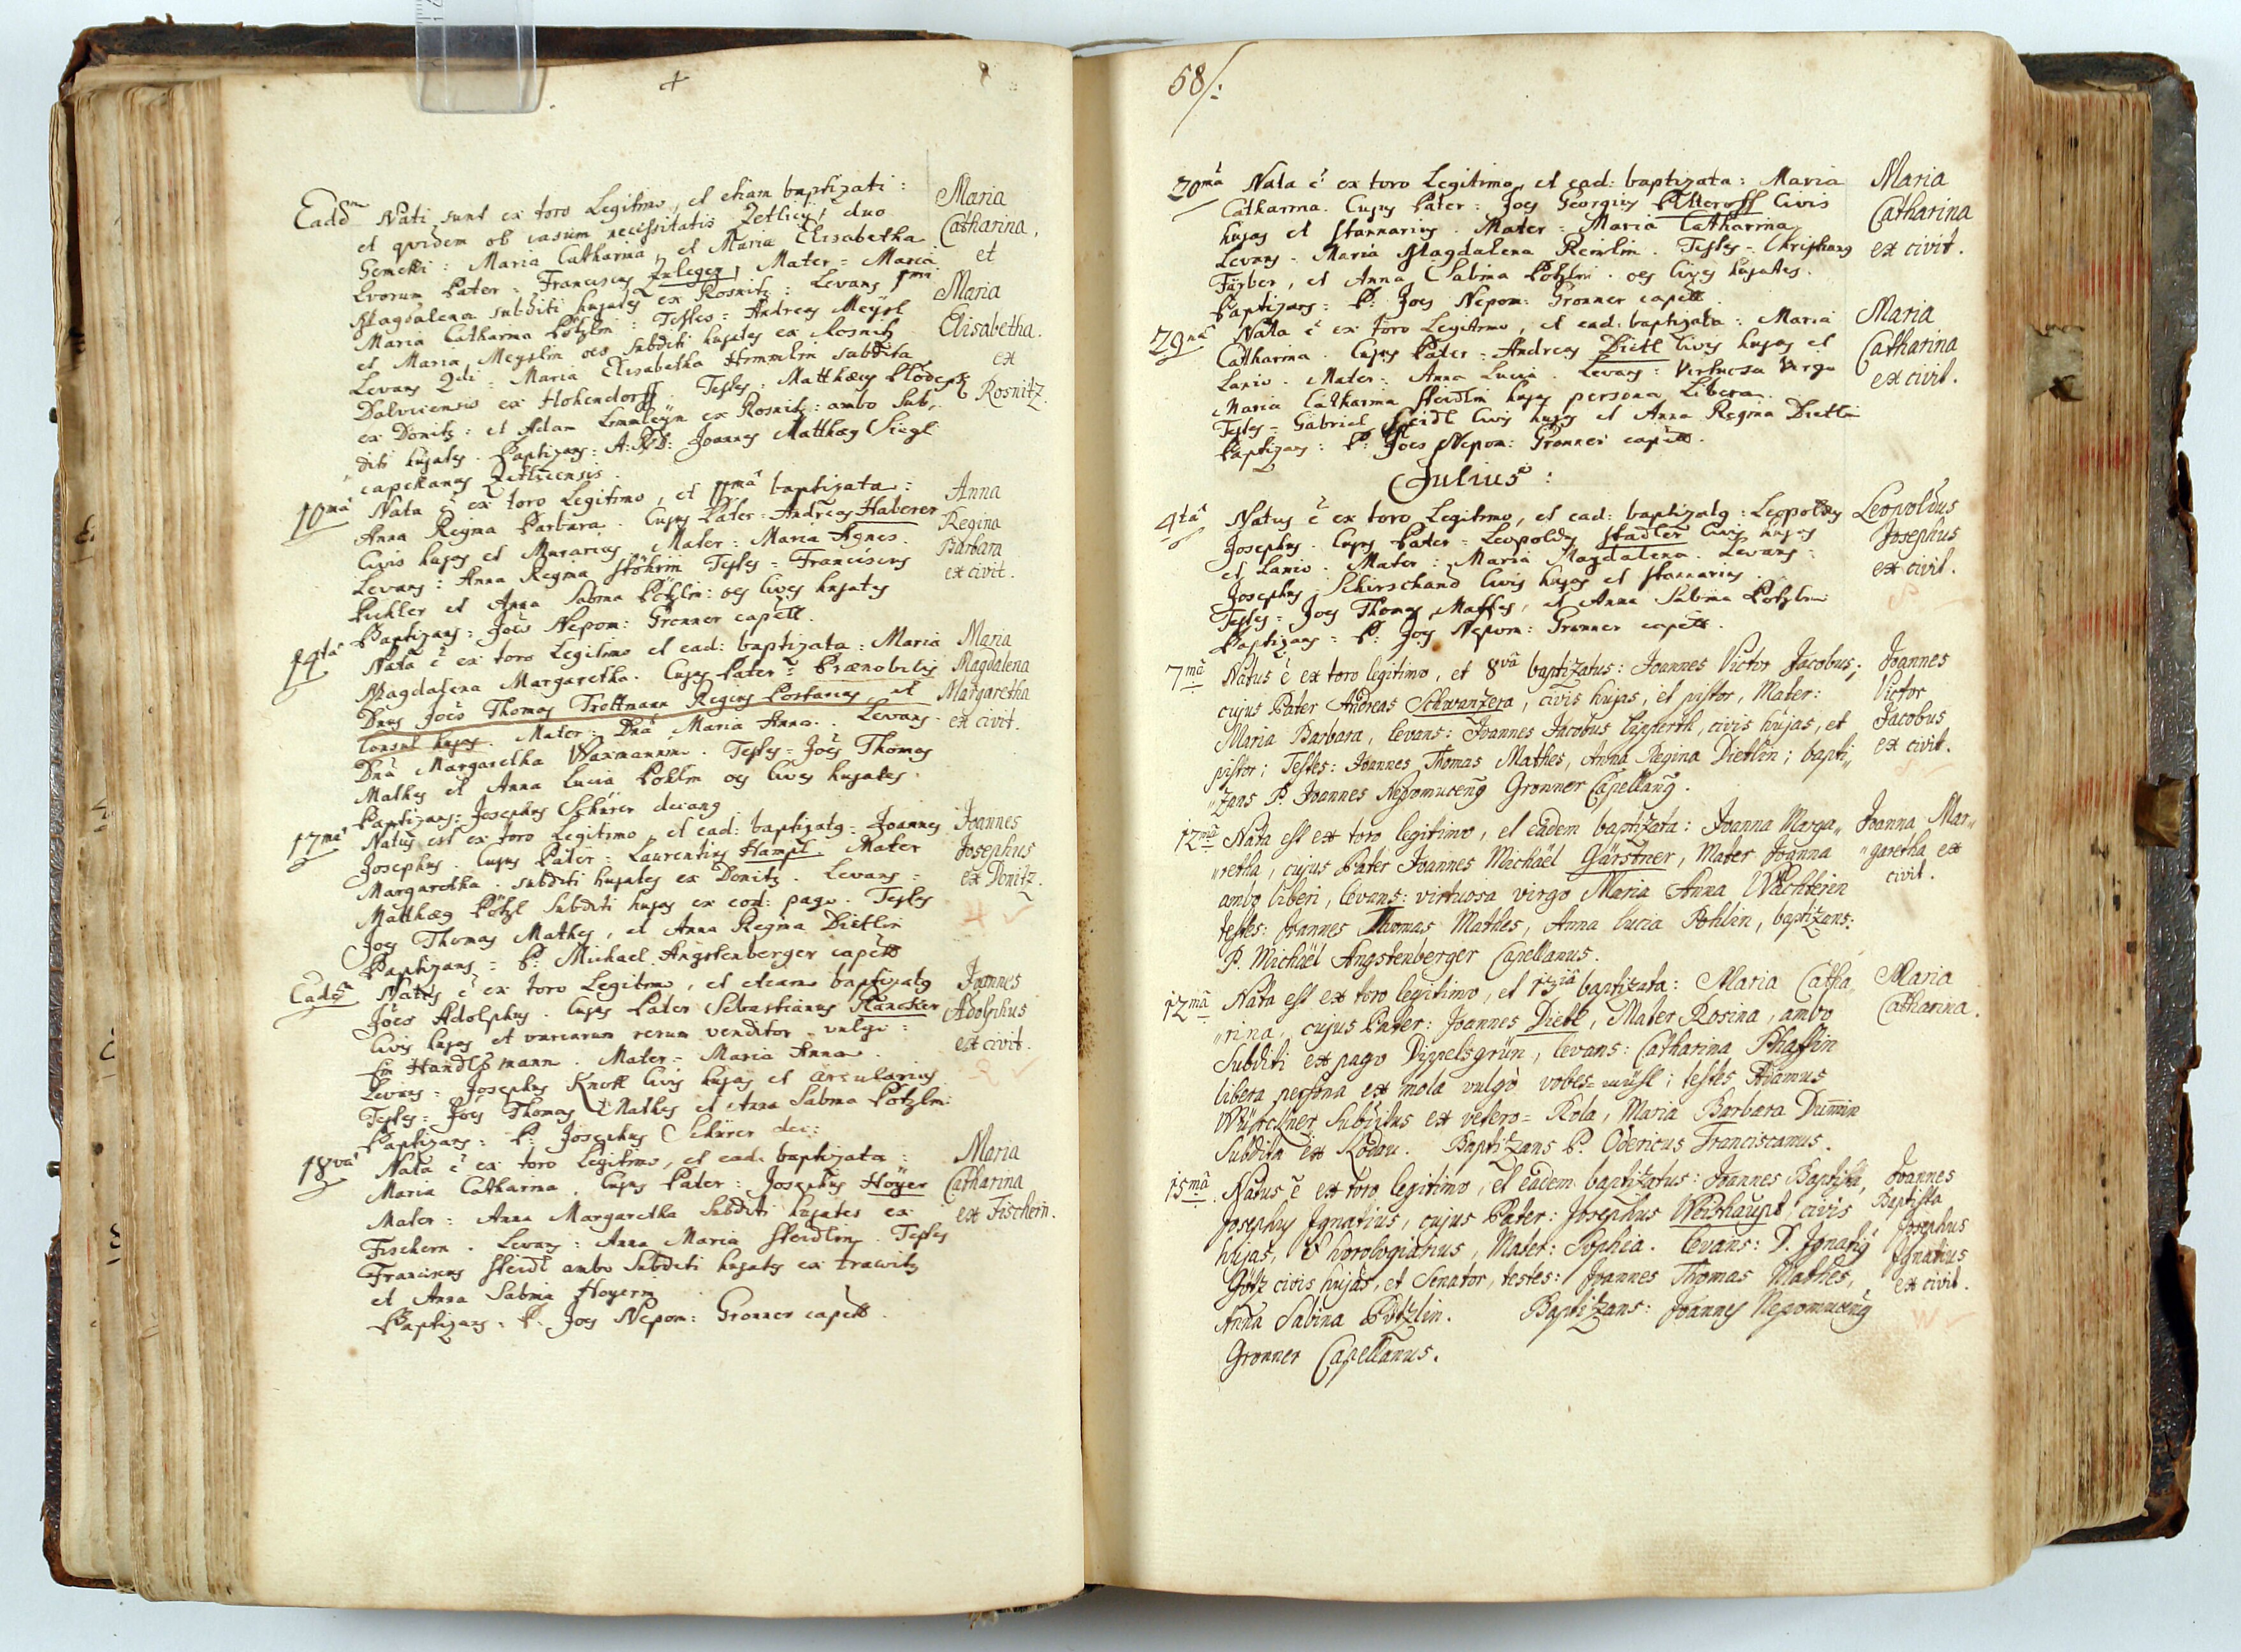 Eadē Nati sunt ex toro Legitimo, et etiam baptizati:
et quidem ob casum necessitatis Zetlicij duo
Gemelli: Maria Catharina, et Maria Elisabetha
Maria
Catharina,
et
Maria
Elisabetha.
ex
Rosnitz.
quorum Pater: Franciscus Zuleger, Mater = Maria
Magdalena subditi hujates ex Rosnitz: Levans 1mi
Maria Catharina Pötzlin: Testes = Andreas Meysl
et Maria Meyslin oēs subditi hujates ex Rosnitz
Levans 2di = Maria Elisabetha Himmlin subdita
Dalvicensis ex Hohendorff. Testes: Matthæus Plödeck
ex Donitz: et Adam Limmleyn ex Rosnitz: ambo Sub,,
diti hujates. Baptizans: A: R: D: Joannes Matthæus Siegl
capellanus Zetliciensis.
10mâ Nata ē ex toro Legitimo, et 11mâ baptizata:
Anna Regina Barbara. Cujus Pater = Andreas Haberer
Civis hujas et Murarius, Mater: Maria Agnes.
Levans: Anna Regina Stöhrin Testes = Franciscus
Pichler et Anna Sabina Pötzlin: oēs Cives hujates
Baptizans: Joēs Nepom: Gronner capell.
Anna
Regina
Barbara
ex civit.
14tâ Nata ē ex toro Legitimo et ead: baptizata: Maria
Magdalena Margaretha. Cujus Pater = Prænobilis
Dnus Joēs Thomas Trottmann Regius Postarius, et
Consul hujas. Mater: Dnā Maria Anna. Levans.
Dnā Margaretha Waxmannin. Testes = Joēs Thomas
Mathes et Anna Lucia Pöhlin oēs Cives hujates.
Baptizans: Josephus Schürer decanus
Maria
Magdalena
Margaretha
ex civit.
17mâ Natus est ex toro Legitimo, et ead: baptizatus = Joannes
Josephus. Cujus Pater: Laurentius Hampl Mater
Margaretha. subditi hujates ex Donitz. Levans =
Matthæus Pötzl subditi hujas ex eod: pago. Testes
Joēs Thomas Mathes, et Anna Regina Dietlin
Baptizans = P: Michael Angstenberger capell
Joannes
Josephus
ex Donitz.
Eadē Natus ē ex toro Legitimo, et etiam baptizatus
Joēs Adolphus. Cujus Pater Sebastianus
Civis hujas et variarum rerum venditor vulgo:
ein Handlsmann. Mater = Maria Anna.
Levans = Josephus Knoll Civis hujas et circularius
Testes = Joēs Thomas Mathes et Anna Sabina Pötzlin:
Baptizans: P: Josephus Schürer dec:
Joannes
Adolphus
ex civit.
18vâ Nata ē ex toro Legitimo, et ead: baptizata:
Maria Catharina. Cujus Pater: Josephus Höyer
Mater: Anna Margaretha Subditi hujates ex
Fischern. Levans: Anna Maria Steidlin. Testes
Franciscus Steidl ambo Subditi hujates ex trawitz
et Anna Sabina Hoyerin
Baptizans: P. Joēs Nepom: Gronner capell.
Maria
Catharina
ex Fischern.
58/:
20mâ Nata ē ex toro Legitimo, et ead: baptizata: Maria
Catharina. Cujus Pater: Joēs Georgius Civis
hujas et stannarius. Mater = Maria Catharina
Levans = Maria Magdalena Reinlin. Testes = Christianus
Färber, et Anna Sabina Pötzlin. oēs Cives hujates.
Baptizans: P: Joēs Nepom: Gronner capell
Maria
Catharina
ex civit.
29nâ Nata ē ex toro Legitimo, et ead: baptizata: Maria
Catharina. Cujus Pater = Andreas Dietl Civis hujas et
Lanio. Mater: Anna Lucia. Levans: Virtuosa Virgo
Maria Catharina Steidlin hujas persona Libera.
Testes = Gabriel Steidl Civis hujas et Anna Regina Dietlin
Baptizans: P: Joēs Nepom: Gronner capell.
Maria
Catharina
ex civit.
Julius:
4tâ Natus ē ex toro Legitimo, et ead: baptizatus: Leopoldus
Josephus. Cujus Pater = Leopoldus Stadler Civis hujas
et Lanio. Mater: Maria Magdalena. Levans:
Josephus Schirschand Civis hujas et stannarius.
Testes = Joēs Thomas Mathes, et Anna Sabina Pötzlin
Baptizans = P: Joēs Nepom: Gronner capell.
Leopoldus
Josephus
ex civit.
7mâ Natus ē ex toro legitimo, et 8vâ baptizatus: Joannes Victor Jacobus,
cujus Pater Andreas Schwantzera, civis hujas, et pistor, Mater:
Maria Barbara, levans: Joannes Jacobus Lipperth, civis hujas, et
pistor; Testes: Joannes Thomas Mathes, Anna Regina Dietlin; bapti,,
,,zans P. Joannes Nepomucenus Gronner Capellanus.
Joannes
Victor
Jacobus
ex civit.
12mâ Nata est ex toro legitimo, et eadem baptizata: Joanna Marga,,
,,retha, cujus Pater Joannes Michäel Gärstner, Mater Joanna
ambo liberi, levans: virtuosa virgo Maria Anna Wächterin
testes: Joannes Thomas Mathes, Anna Lucia Pöhlin, baptizans:
P. Michäel Angstenberger Capellanus.
Joanna Mar,,
,,garetha ex
civit.
12mâ Nata est ex toro legitimo, et 13tiâ baptizata: Maria Catha,,
,,rina, cujus Pater: Joannes Dietl, Mater Rosina, ambo
Subditi ex pago Dippelsgrün, levans: Catharina Phaffin
libera persona ex mola vulgò vobes=mühl; testes Adamus
Würckner Subditus ex vetero=Rola, Maria Barbara Dumin
Subdita ex Kodau. Baptizans P. Odericus Franciscanus.
Maria
Catharina.
15mâ Natus ē ex toro legitimo, et eadem baptizatus: Joannes Baptista,
Josephus Ignatius, cujus Pater: Josephus Weishaupt, civis
hujas, & horologiarius, Mater: Sophia. levans: D. Ignatius
Götz civis hujas, et Senator, testes: Joannes Thomas Mathes,
Anna Sabina Pötzlin. Baptizans: Joannes Nepomucenus
Gronner Capellanus.
Joannes
Baptista
Josephus
Ignatius
ex civit.